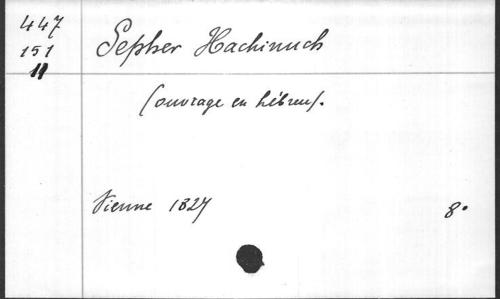 447
151
11
Sepher Hachinuch
(ouvrage en hébreu).
Vienne 1827
8°